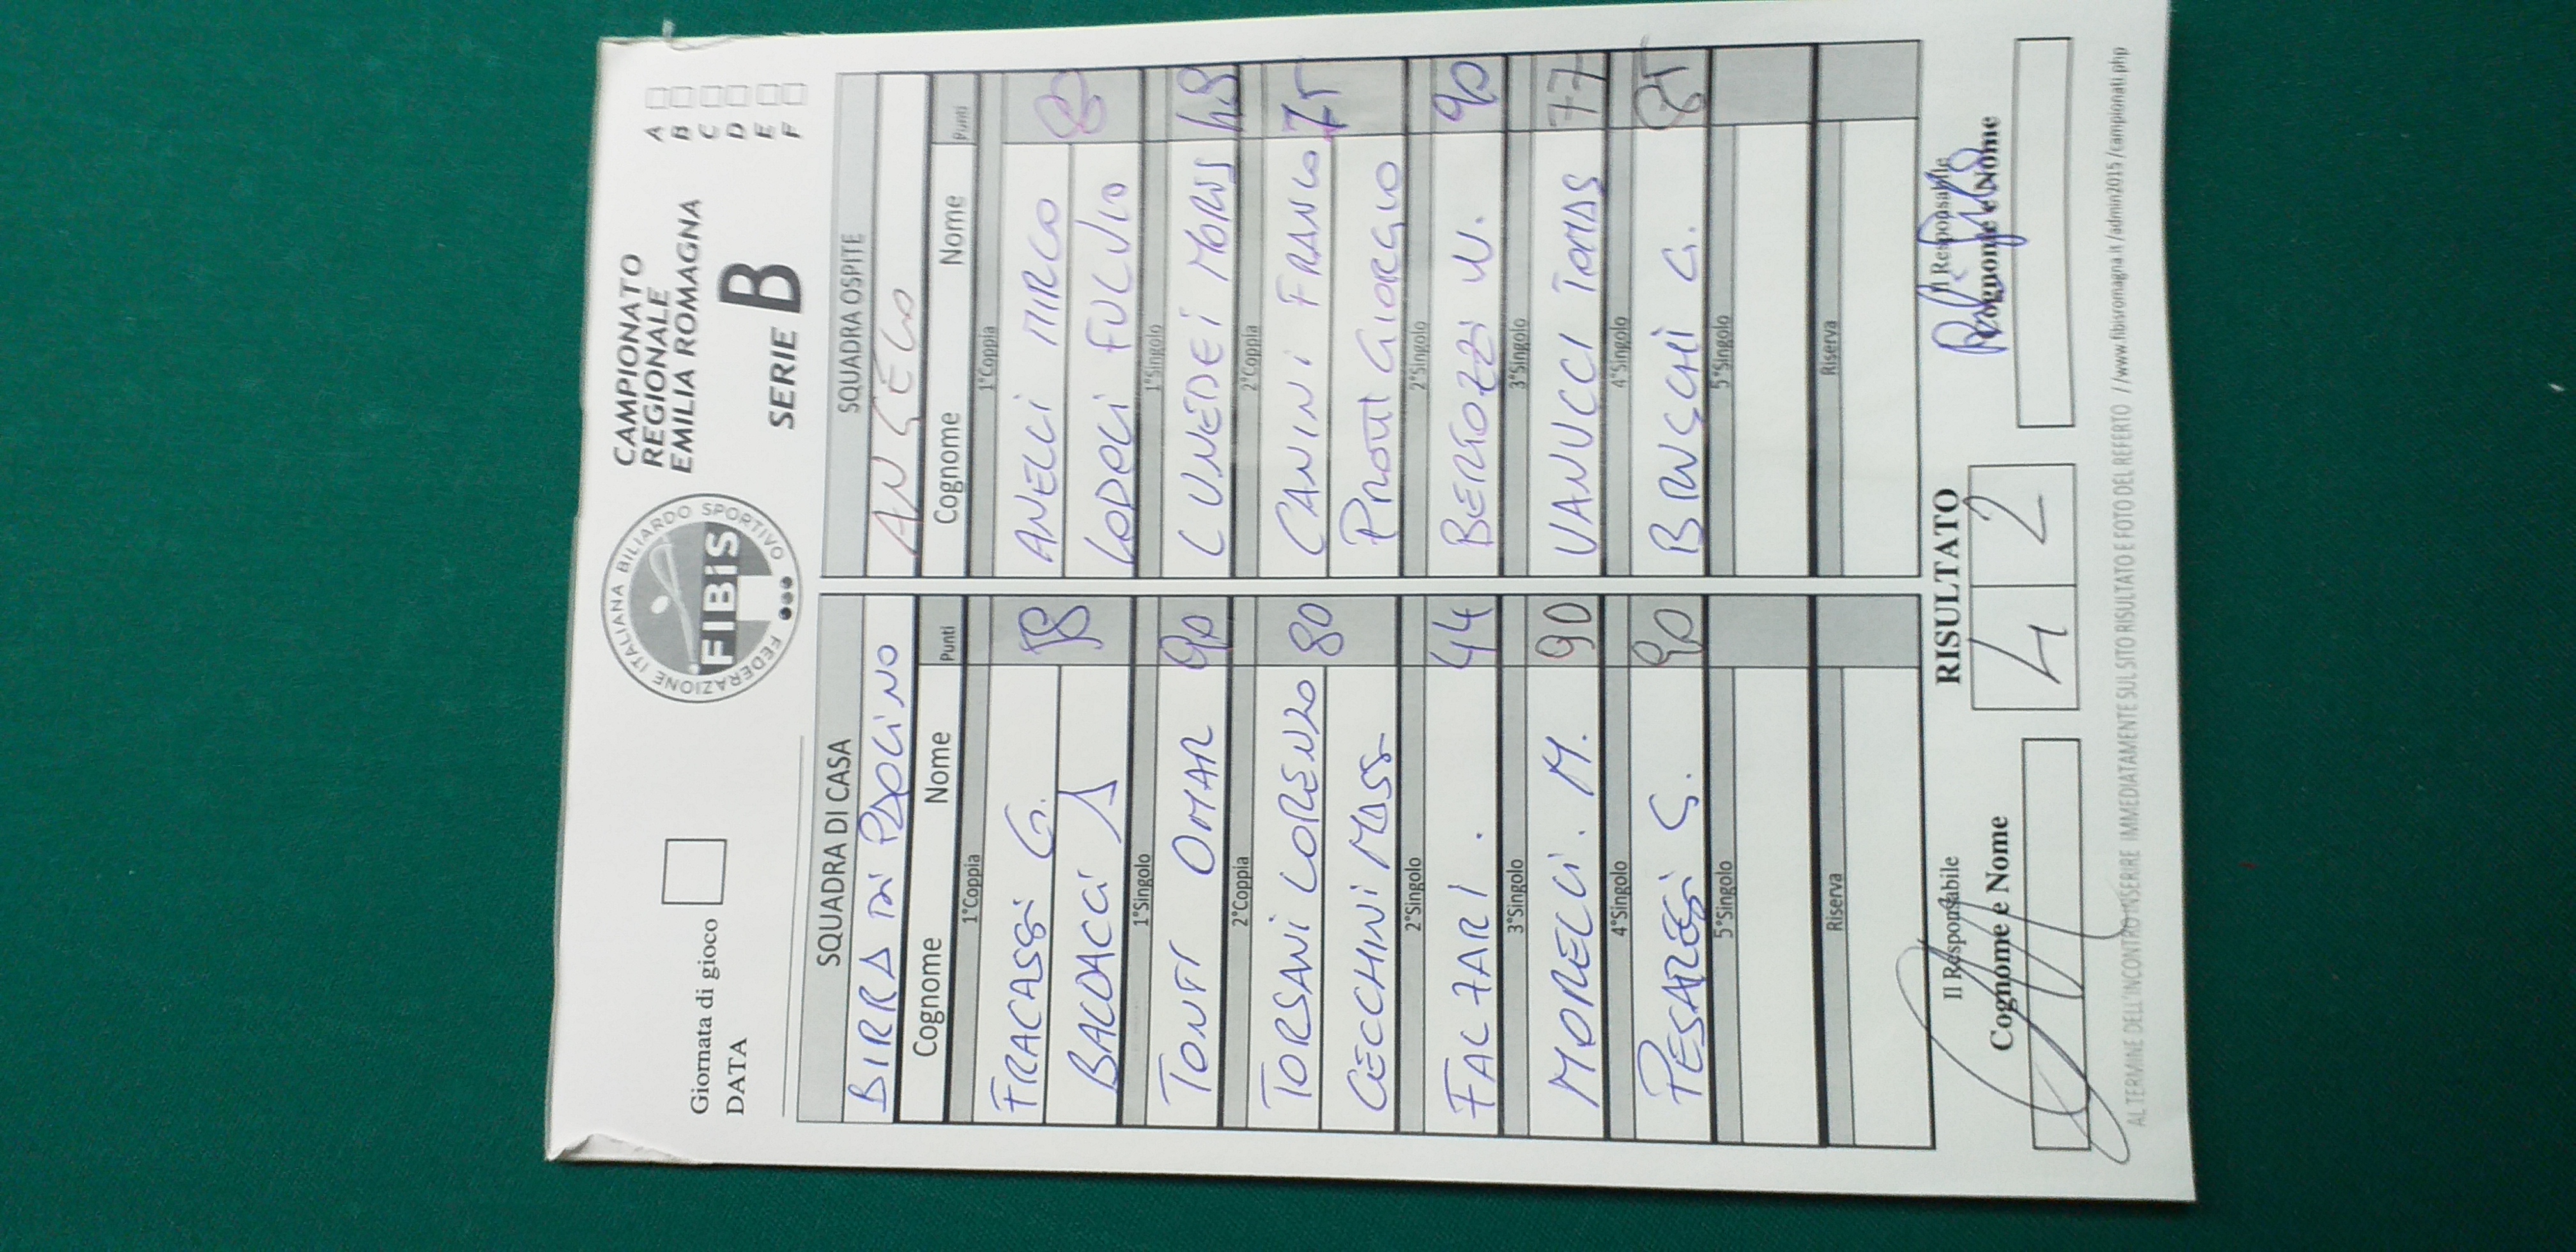 Giornata di gioco
DATA
FEDERAZIONE ITALIANA BILIARDO SPORTIVO
FIBiS
CAMPIONATO
REGIONALE
EMILIA ROMAGNA
SERIE B
A
B
C
D
E
F
SQUADRA DI CASA
BIRRA DI PDOLINO
Cognome Nome Punti
1°Coppia
FRACASSI G.
BALDACCI A
58
1°Singolo
TONTI OMAR 90
2°Coppia
TORSANI LORENZO 80
CECCHINI MASS
2°Singolo
FALZARI. 44
3°Singolo
MORELLI. M. 90
4°Singolo
PESARESI G. 90
5°Singolo
Riserva
SQUADRA OSPITE
ANGELO
Cognome Nome Punti
1°Coppia
ANELLI MIRCO 80
LODOLI FULVIO
1°Singolo
LUNEDEI MORIS
2°Coppia
CANINI FRANCO 75
PROTTI GIORGIO
2°Singolo
BERTOZZI W. 90
3°Singolo
VANUCCI TOMAS 77
4°Singolo
BRUSCHI G. 85
5°Singolo
Riserva
Il Responsabile
Cognome e Nome
RISULTATO
4 2
Il Responsabile
Cognome e Nome
AL TERMINE DELL'INCONTRO INSERIRE IMMEDIATAMENTE SUL SITO RISULTATO E FOTO DEL REFERTO //www.fibisromagna.it/admin2015/campionati.php